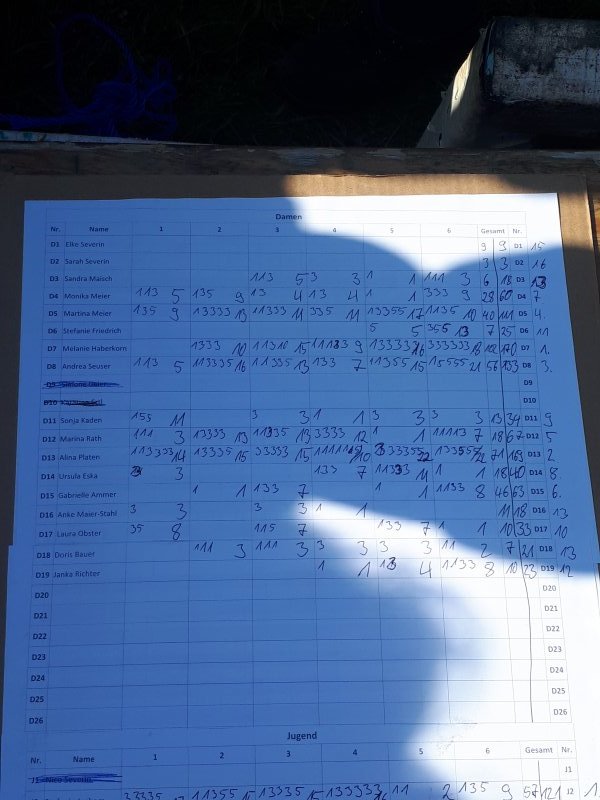 Damen
Nr. Name 1 2 3 4 5 6 Gesamt Nr.
D1 Elke Severin 9 D1 15
D2 Sarah Severin 3 3 D2 16
D3 Sandra Maisch 113 5 3 3 1 1 111 3 6 18 D3
D4 Monika Meier 113 5 135 9 13 4 13 4 1 1 333 9 28 60 D4 7
D5 Martina Meier 135 9 13333 13 11333 11 335 11 13355 17 1135 10 40 111 D5 4.
D6 Stefanie Friedrich 5 5 355 13 7 25 D6 11
D7 Melanie Haberkorn 1333 10 11310 15 9 13333 333333 18 170 D7 1.
D8 Andrea Seuser 113 5 113335 16 11335 13 133 7 11355 15 15555 21 56 133 D8 3.
D9
D10
D11 Sonja Kaden 155 11 3 3 1 1 3 3 3 3 13 34 D11 9
D12 Marina Rath 111 3 13333 13 11335 13 3333 12 1 1 11113 7 18 67 D12 5
D13 Alina Platen 113333 14 13335 15 33333 15 10 333355 22 22 71 163 D13 2
D14 Ursula Eska 3 133 7 11333 11 1 1 18 40 D14 8.
D15 Gabrielle Ammer 1 1 133 7 1 1133 8 46 63 D15 6.
D16 Anke Maier-Stahl 3 3 3 3 1 1 11 18 D16 13
D17 Laura Obster 35 8 115 7 133 7 1 1 10 33 D17 10
D18 Doris Bauer 111 3 111 3 3 3 3 3 11 2 7 21 D18 13
D19 Janka Richter 1 1 13 4 1133 8 10 23 D19 12
D20 D20
D21 D21
D22 D22
D23 D23
D24 D24
D25 D25
D26 D26
Jugend
Nr. Name 1 2 3 4 5 6 Gesamt Nr.
J1 Nico Severin J1
33335 11355 15 13335 15 133333 16 11 2 135 9 57 121 J2 1.